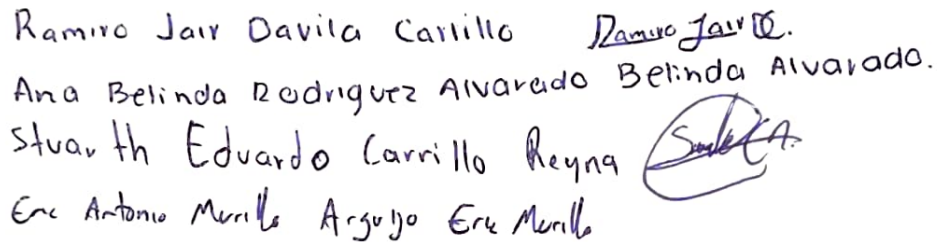 Ramiro Jair Davila Carrillo Ramiro Jair DC.
Ana Belinda Rodriguez Alvarado Belinda Alvarado.
Stuarth Eduardo Carrillo Reyna
Eric Antonio Murillo Arguijo Eric Murillo